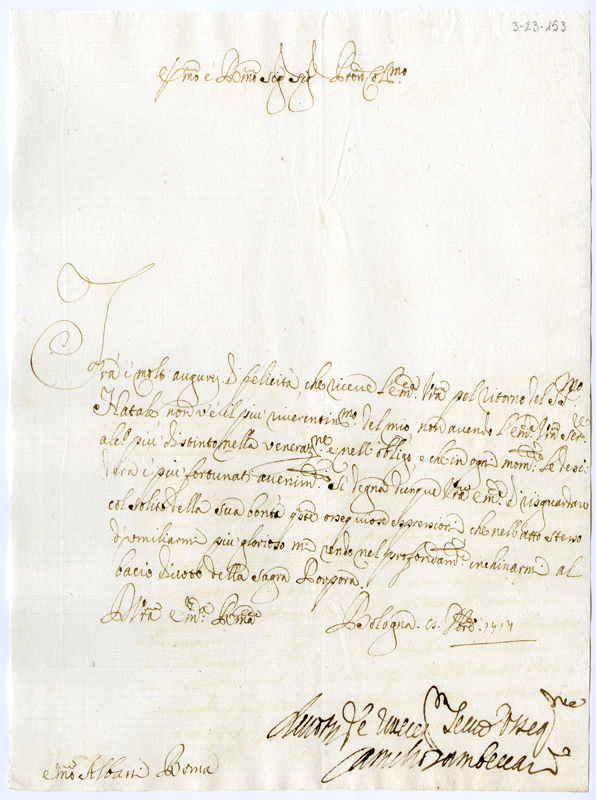 3-23-153
Em̃o e Rm̃o Sig. Sig. Pron Col.mo
Trà i molti augurij di felicità, che riceve l'Em.a Vrã pel ritorno del SS.mo
Natale non v'è il più riverentiss.mo del mio, non avendo l'Em.a Vrã Ser-
più distinto nella veneraz.ne e nell'obligo, e che in ogni mom.to Le desi-
dera i più fortunati avenim.ti Si degna dunque Vrã Em.a di risguardare
col solito della sua bontà q.ste ossequiose espressioni che nell'atto stesso
d'umiliarmi più glorioso mi rendo nel profondam.te inclinarmi al
bacio divoto della Sagra Porpora.
D Vrã Em.a Rm̃a
Bologna 1717
Zambeccari
Em̃o Albani Roma